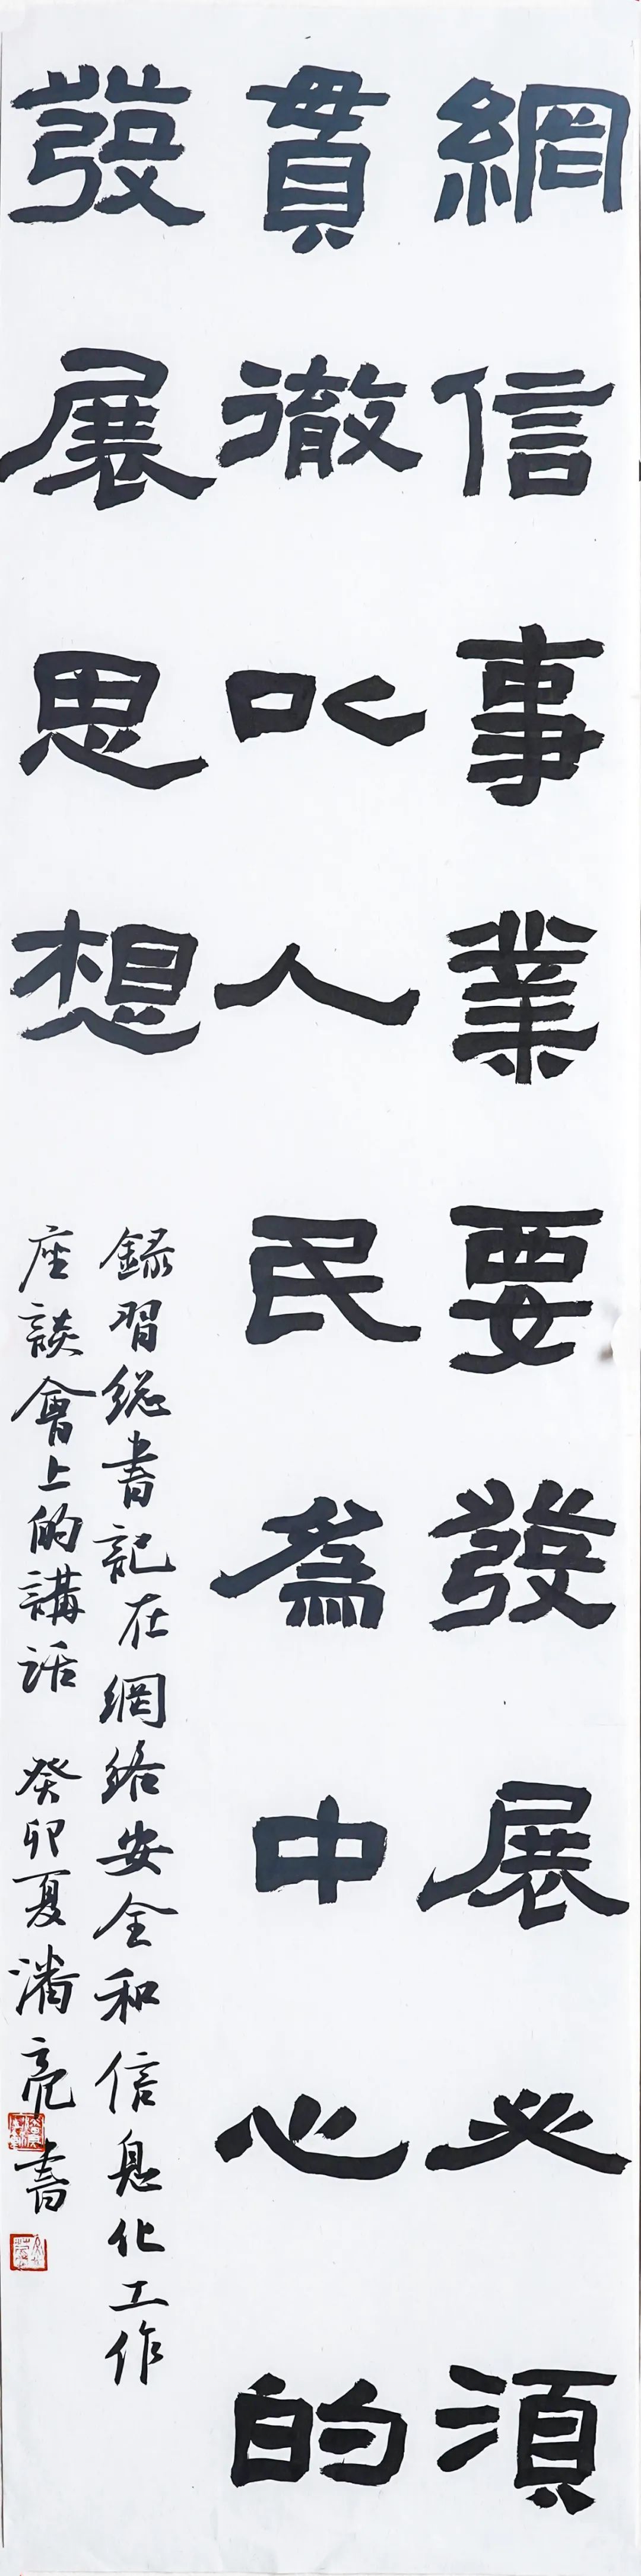 網信事業要發展必須
貫徹以人民為中心的
發展思想
録習総書記在網絡安全和信息化工作
座談會上的講話 癸卯夏潘亮書